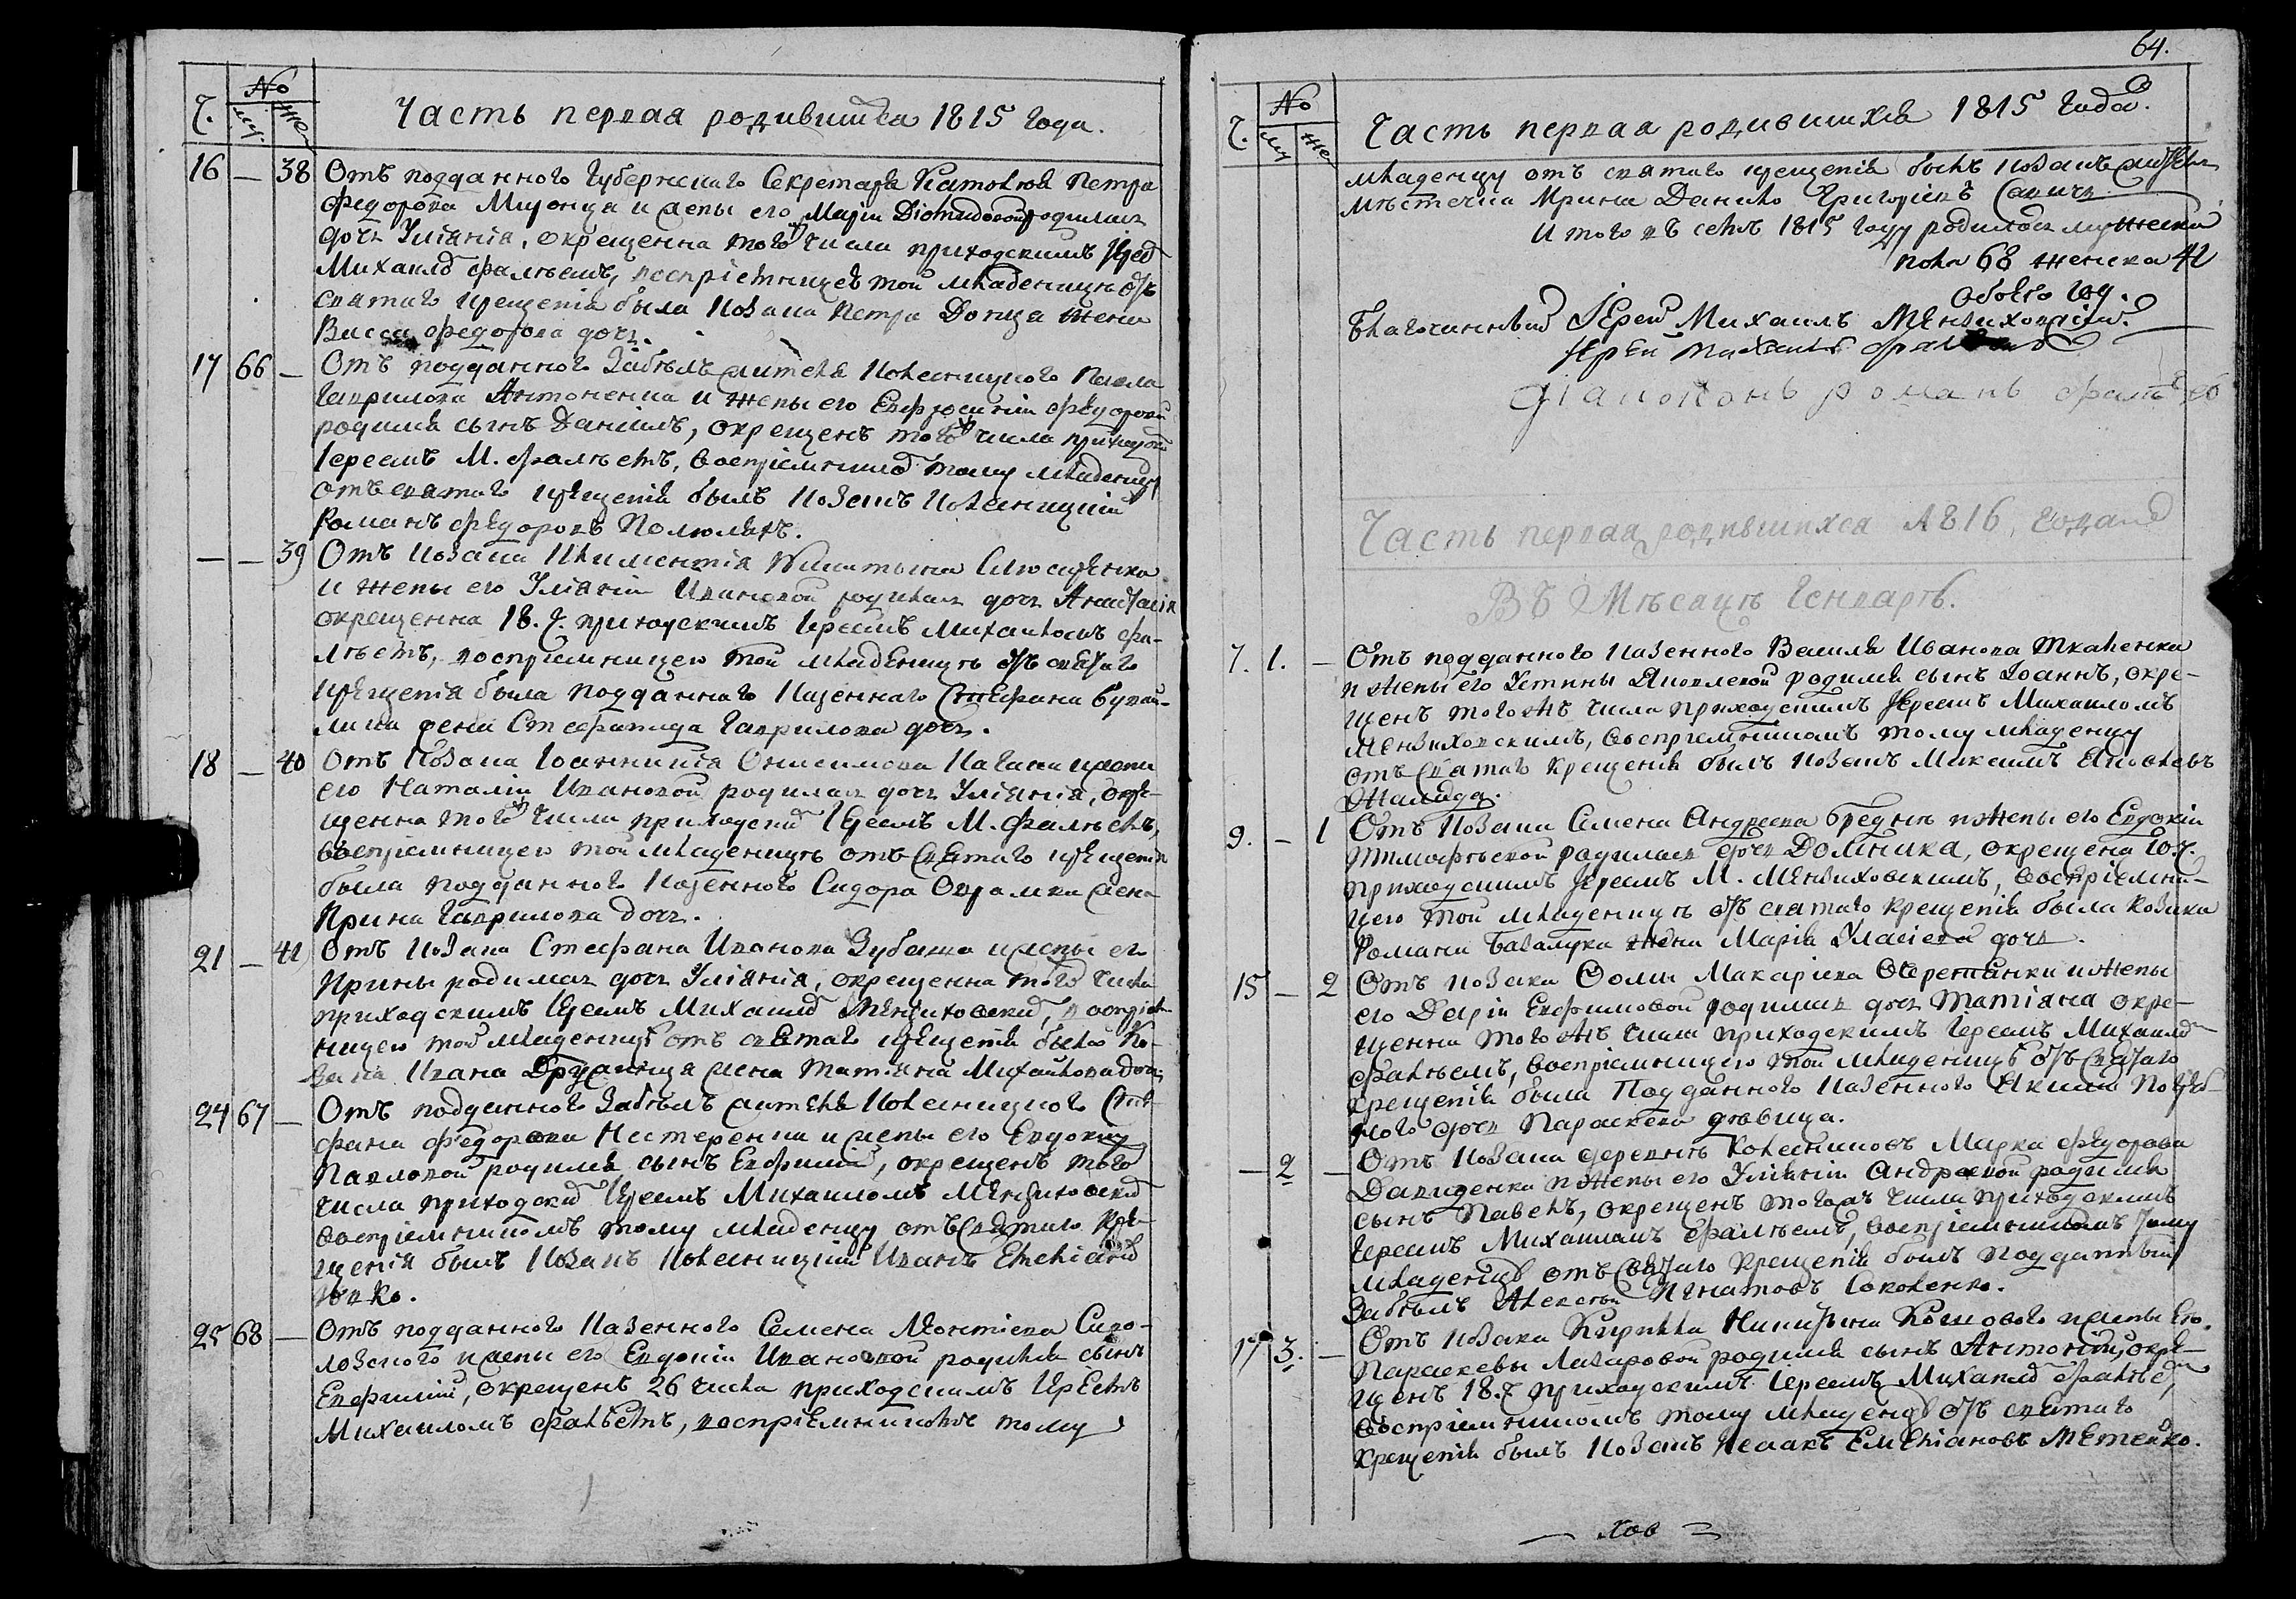 Ч.
№
Му.
Же.
Часть первая родившихся 1815 года.
16 — 38 Отъ подданного Губернскаго Секретаря Петра
Федорова Миронца и жены его Маріи Діомидовой родилась
дочь Уліянія, окрещенна того ж числа приходскимъ Іере
Михаилъ Фалѣемъ, воспріемницею той младеницѣ отъ
святаго крещенія была козака Петра Донца жена
Васса Федорова дочь.
17 66 — Отъ подданного Забѣлъ жителя Колесницкого Павла
Гаврилова Антоненка и жены его Евфросиніи Федоровой
родился сынъ Даніилъ, окрещенъ того ж числа приходски
Іереемъ М. Фалѣемъ, воспріемникомъ тому младенцу
отъ святаго крещенія былъ козакъ Колесницкій
Романъ Федоровъ
— — 39 Отъ козака Климентія Никитина
и жены его Уліяніи Ивановой родилась дочь Анастасія
окрещенна 18. ч. приходскимъ Іереемъ Михаиломъ Фа-
лѣемъ, воспріемницею той младеницѣ отъ святаго
крещенія была подданнаго Казеннаго Стефана
жена Стефанида Гаврилова дочь.
18 — 40 Отъ козака Іоанникія Онисимова и жены
его Наталіи Ивановой родилась дочь Уліянія, окре-
щенна того ж числа приходски Іереемъ М. Фалѣемъ,
воспріемницею той младеницѣ отъ святаго крещенія
была подданного Казенного Сидора жена
Ирина Гаврилова дочь.
21 — 41 Отъ козака Стефана Иванова и жены его
Ирины родилась дочь Уліянія, окрещенна того числа
приходскимъ Іереемъ Михаилъ Менжиховски, воспріем-
ницею той младеницѣ отъ святаго крещенія была Ко-
зака Ивана жена Татіяна Михайлова дочь
24 67 — Отъ подданного Забѣлъ жителя Колесницкого Сте-
фана Федорова Нестеренка и жены его Евдокии
Павловой родился сынъ Евфимій, окрещенъ того
числа приходски Іереемъ Михаиломъ Менжиховски
воспріемникомъ тому младенцу отъ святаго кре-
щенія былъ Козакъ Колесницкій Иванъ Емеліано

25 68 — Отъ подданного Казенного Семена Леонтіева
и жены его Евдокіи Ивановой родился сынъ
Евфимій, окрещенъ 26 числа приходскимъ Іереемъ
Михаиломъ Фалѣемъ, воспріемникомъ тому
64.
Ч.
№
Му
Же
Часть первая родившихся 1815 года.
младенцу отъ святаго крещенія былъ козакъ житель
мѣстечка Данило Григоріевъ
И того въ семъ 1815 году родилось мужеска
пола 68 женска 41
обоего 109.
Благочинный Іерей Михаилъ Менжиховскій.
Іерей Михаилъ Фалѣевъ
Діаконъ Романъ Фалѣевъ
Часть первая родившихся 1816, года
Въ Мѣсяцѣ Генварѣ.
7. 1. — Отъ подданного Казенного Василя Иванова Ткаченка
и жены его Устины Яковлевой родился сынъ Іоаннъ, окре-
щенъ того жъ числа приходскимъ Іереемъ Михаиломъ
Менжиховскимъ, воспріемникомъ тому младенцу
отъ святаго крещенія былъ козакъ Максимъ Яковлевъ

9. — 1 Отъ козака Семена Андреева и жены его Евдокіи
Тимофѣевой родилась дочь Домника, окрещена 10. ч.
приходскимъ Іереемъ М. Менжиховскимъ, воспріемни-
цею той младеницѣ отъ святаго крещенія была козака
Романа Базалука жена Марія Власіева дочь.
15 — 2 Отъ козака Ѳомы Макаріева и жены
его Даріи Евфимовой родилась дочь Татіяна окре-
щенна того жъ числа приходскимъ Іереемъ Михаилъ
Фалѣемъ, воспріемницею той младеницѣ отъ святаго
крещенія была Подданного Казенного Якима
дочь Параскева дѣвица.
— 2 — Отъ козака деревни Колесниковъ Марка Федорова
Давиденка и жены его Уліяніи Андреевой родился
сынъ Павелъ, окрещенъ того жъ числа приходскимъ
Іереемъ Михаиломъ Фалѣемъ, воспріемникомъ тому
младенцу отъ святаго крещенія былъ подданный
Забѣлъ Алексѣй Игнатовъ Яковенко.
17 3. — Отъ козака Кирилла Никитина Кошового и жены его
Параскевы Лазаровой родился сынъ Антоній, окре-
щенъ 18. ч приходскимъ Іереемъ Михаилъ Фалѣе,
воспріемникомъ тому младенцу отъ святаго
крещенія былъ козакъ Исаакъ Емеліановъ Метейко.